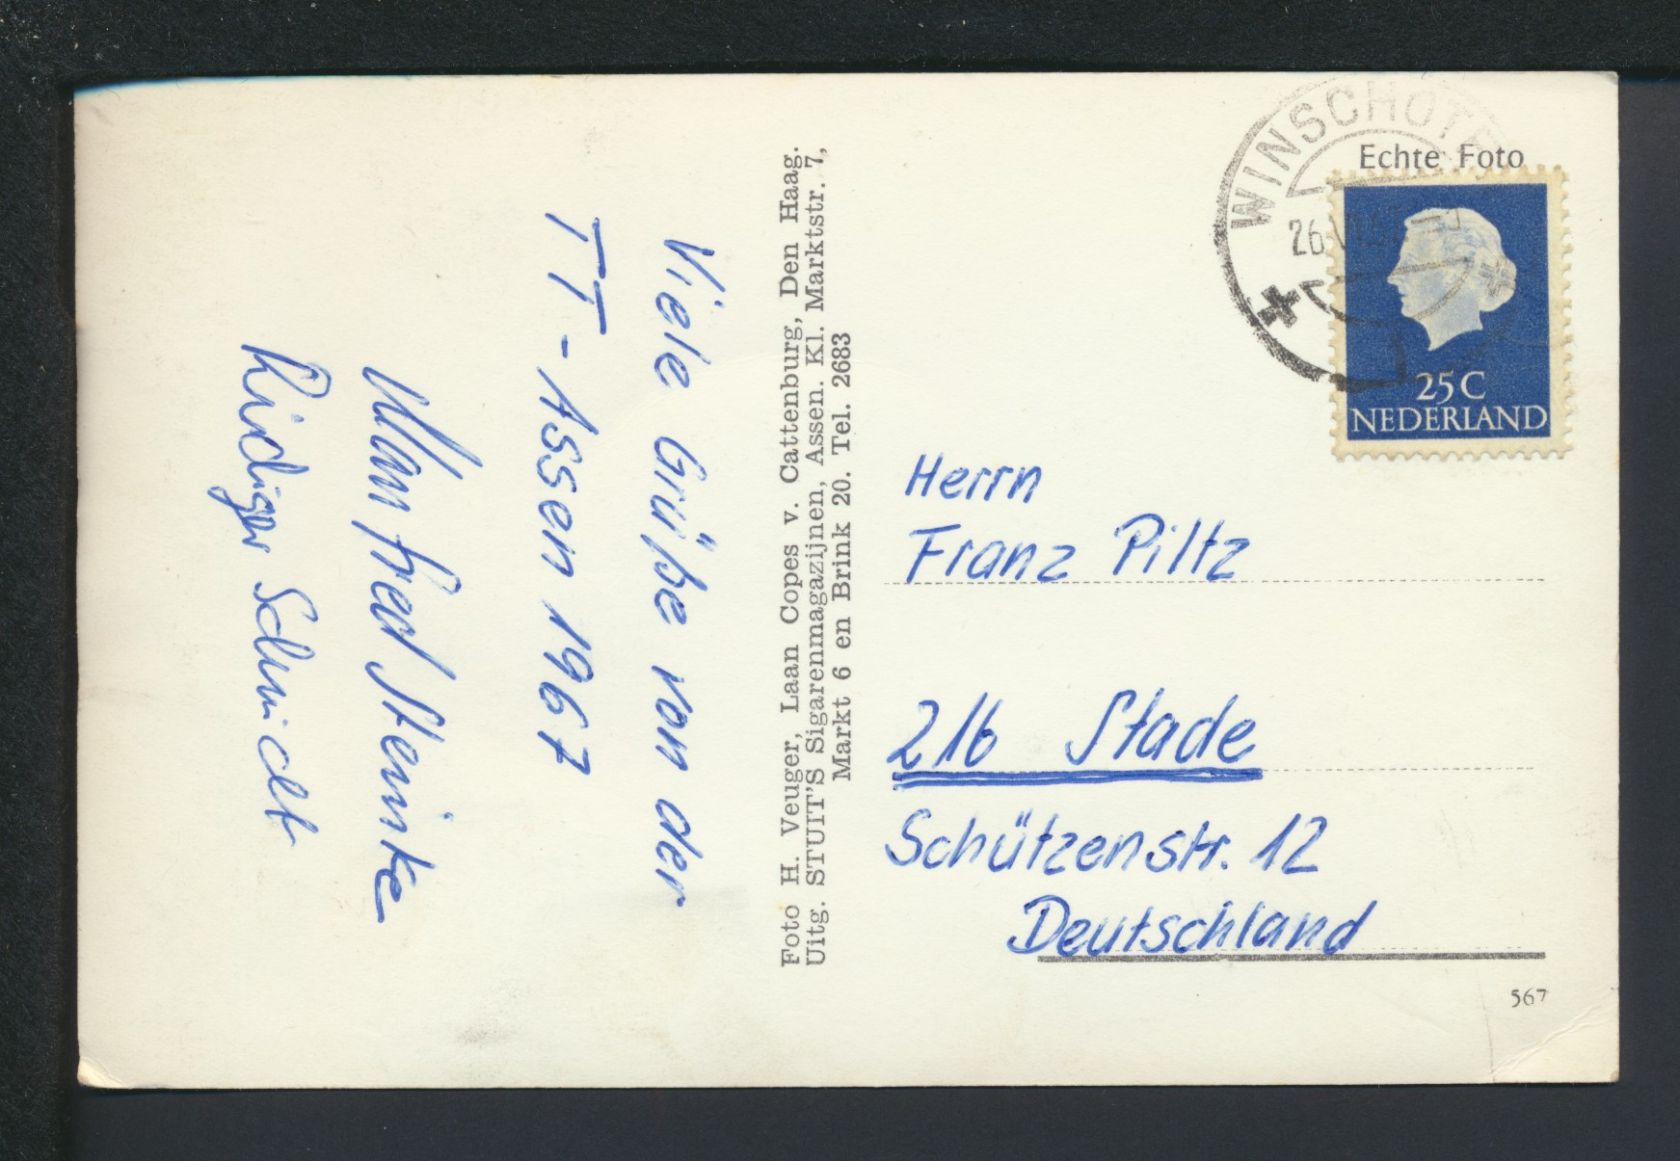 Viele Grüße von der
TT-Assen 1967
Manfred Steinke
Rüdiger Schmidt
Foto H. Veuger, Laan Copes v. Cattenburg, Den Haag.
Uitg. STUIT'S Sigarenmagazijnen, Assen. Kl. Marktstr. 7,
Markt 6 en Brink 20. Tel. 2683
WINSCHOTE
26
Echte Foto
25 C
NEDERLAND
Herrn
Franz Piltz
216 Stade
Schützenstr. 12
Deutschland
567